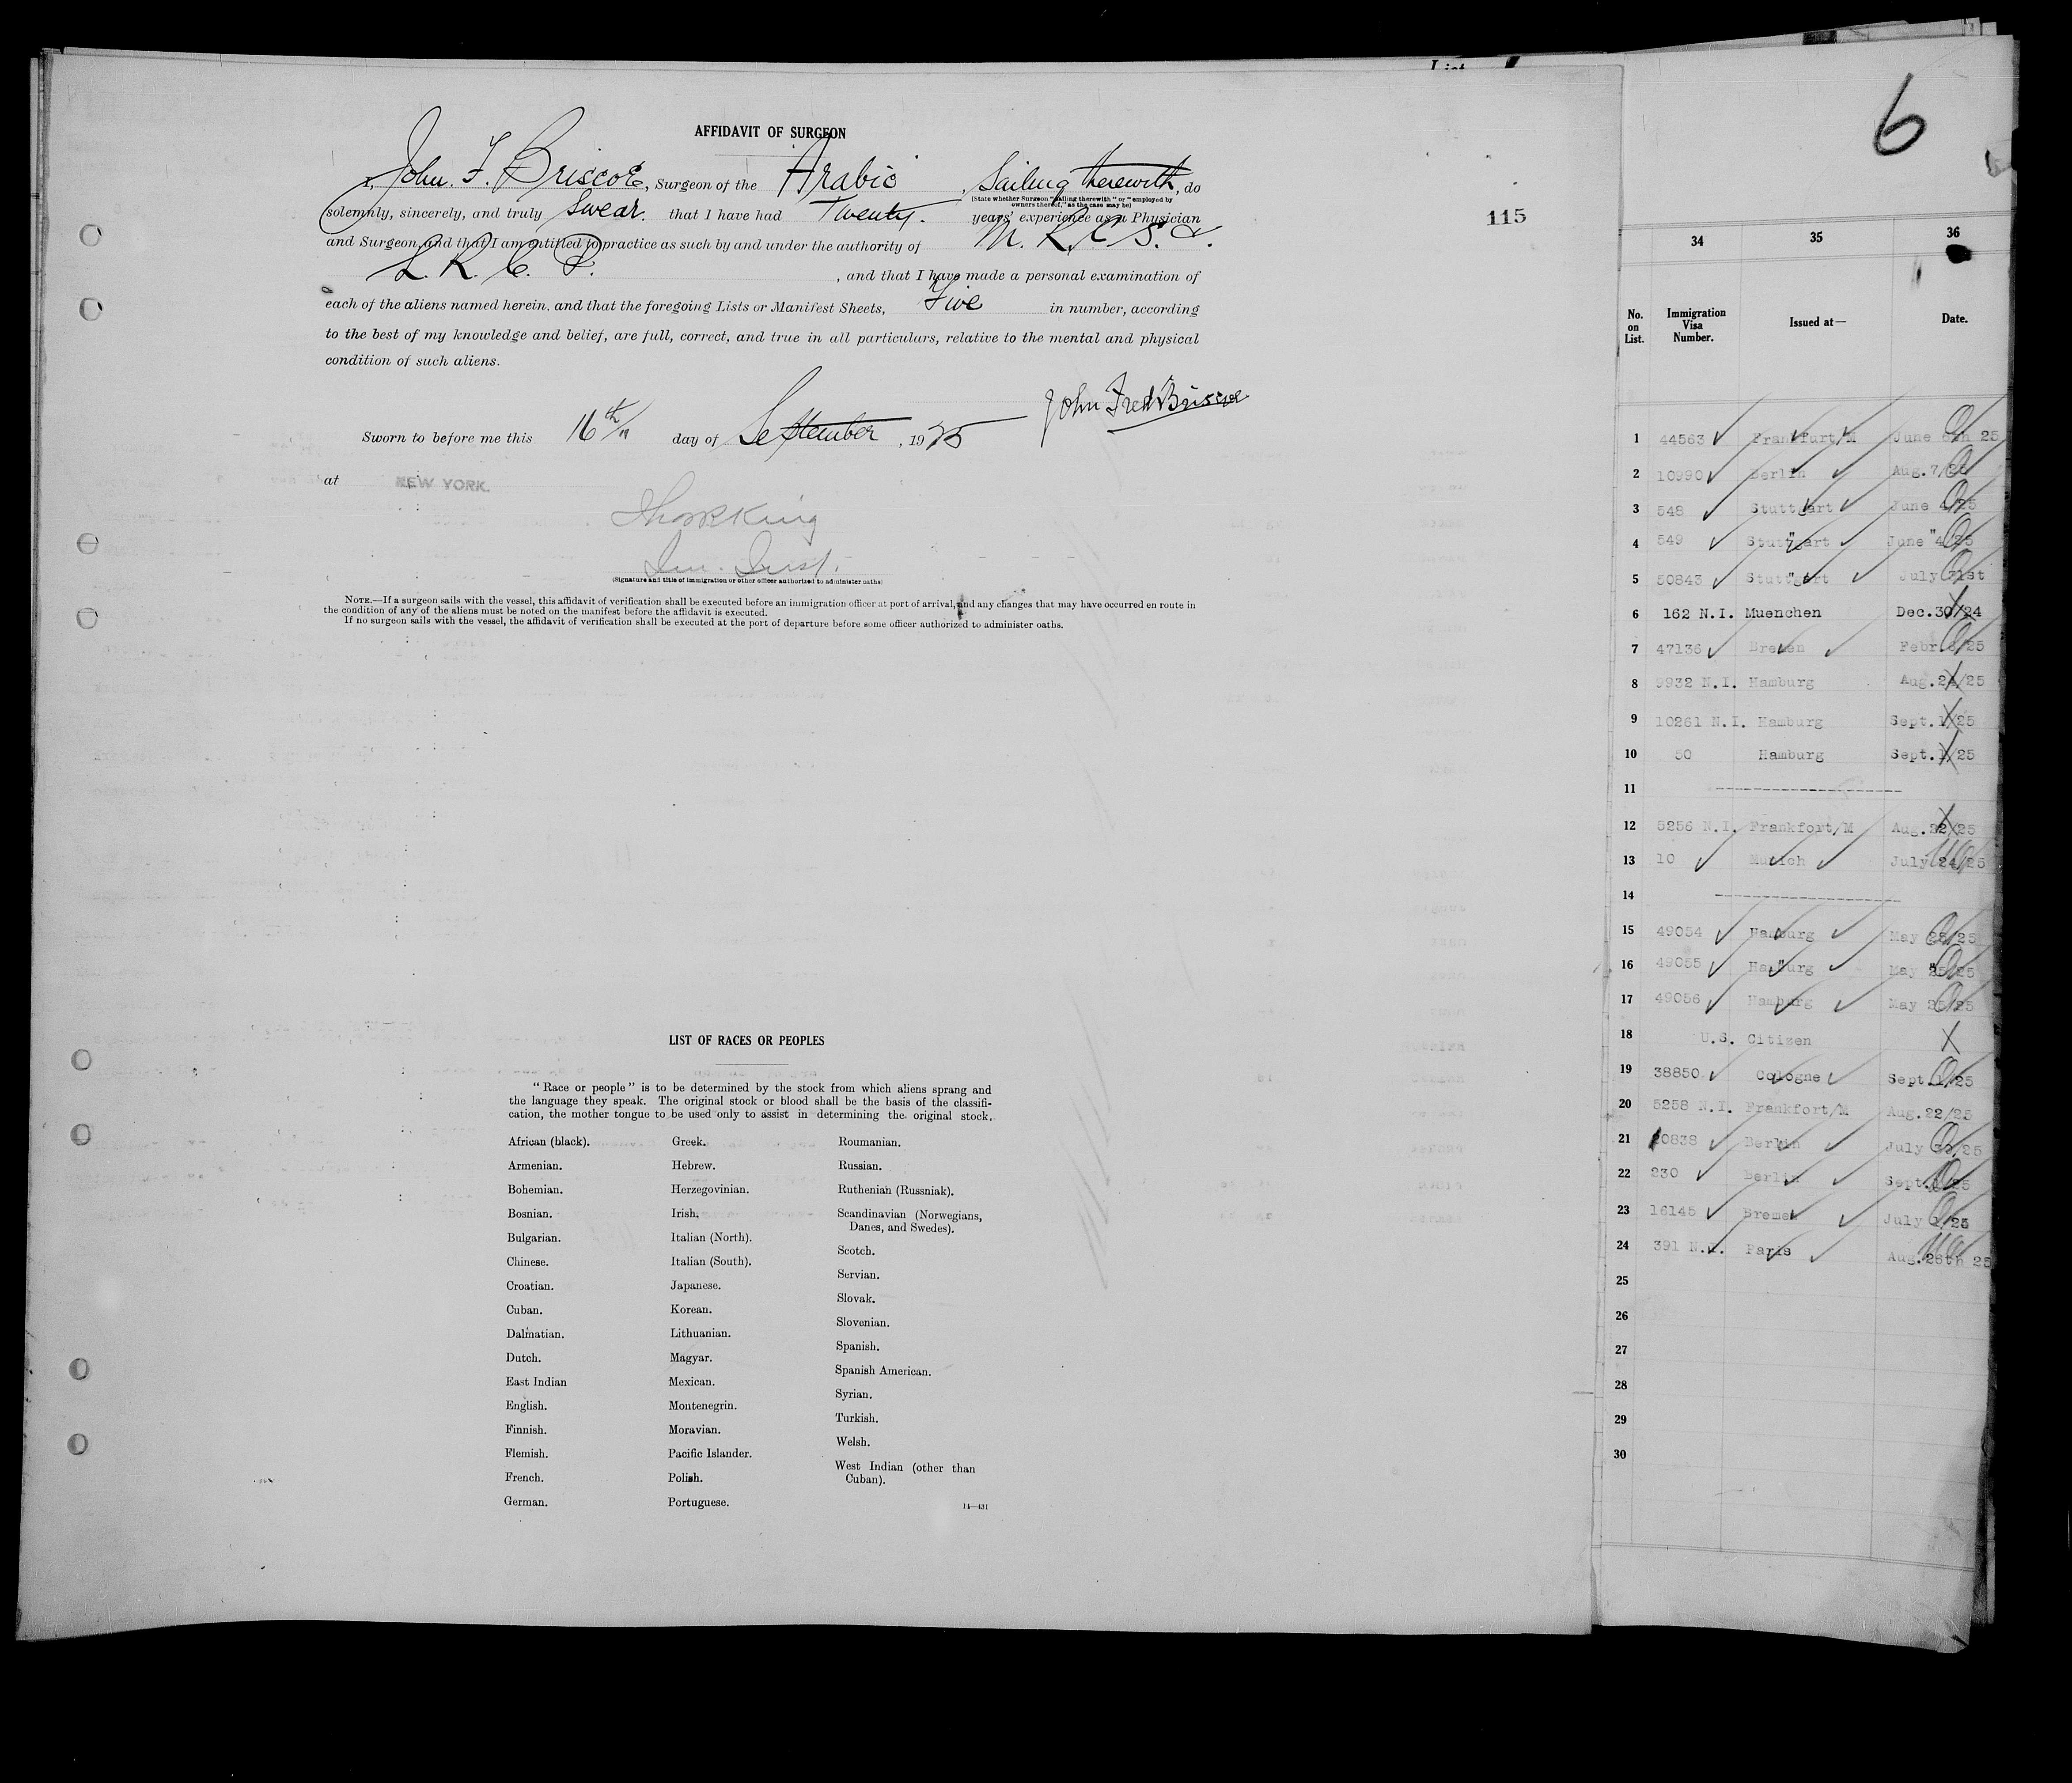 AFFIDAVIT OF SURGEON
I, John. F. Briscoe, Surgeon of the Arabic, Sailing therewith, do
(State whether Surgeon "sailing therewith" or "employed by
owners thereof," as the case may be)
solemnly, sincerely, and truly swear. that I have had Twenty. years' experience as a Physician
and Surgeon, and that I am entitled to practice as such by and under the authority of M. R. C. S. &.
L. R. C. P. , and that I have made a personal examination of
each of the aliens named herein, and that the foregoing Lists or Manifest Sheets, Five in number, according
to the best of my knowledge and belief, are full, correct, and true in all particulars, relative to the mental and physical
condition of such aliens.
John Fred Briscoe
Sworn to before me this 16th day of September, 1925
at NEW YORK.
(Signature and title of immigration or other officer authorized to administer oaths)
NOTE.—If a surgeon sails with the vessel, this affidavit of verification shall be executed before an immigration officer at port of arrival, and any changes that may have occurred en route in
the condition of any of the aliens must be noted on the manifest before the affidavit is executed.
If no surgeon sails with the vessel, the affidavit of verification shall be executed at the port of departure before some officer authorized to administer oaths.
115
LIST OF RACES OR PEOPLES
"Race or people" is to be determined by the stock from which aliens sprang and
the language they speak. The original stock or blood shall be the basis of the classifi-
cation, the mother tongue to be used only to assist in determining the original stock.
African (black).
Armenian.
Bohemian.
Bosnian.
Bulgarian.
Chinese.
Croatian.
Cuban.
Dalmatian.
Dutch.
East Indian
English.
Finnish.
Flemish.
French.
German.
Greek.
Hebrew.
Herzegovinian.
Irish.
Italian (North).
Italian (South).
Japanese.
Korean.
Lithuanian.
Magyar.
Mexican.
Montenegrin.
Moravian.
Pacific Islander.
Polish.
Portuguese.
Roumanian.
Russian.
Ruthenian (Russniak).
Scandinavian (Norwegians,
Danes, and Swedes).
Scotch.
Servian.
Slovak.
Slovenian.
Spanish.
Spanish American.
Syrian.
Turkish.
Welsh.
West Indian (other than
Cuban).
14—431
6
34 35 36
No. on List. Immigration Visa Number. Issued at— Date.
1 44563 Frankfurt/M June 25
2 10990 Berlin Aug. 7/25
3 548 Stuttgart June 4/25
4 549 Stuttgart June 4/25
5 50843 Stuttgart July 31st
6 162 N.I. Muenchen Dec.30/24
7 47136 Bremen Febr. /25
8 9932 N.I. Hamburg Aug.24/25
9 10261 N.I. Hamburg Sept.1/25
10 50 Hamburg Sept.1/25
11 --------------------
12 5256 N.I. Frankfort/M Aug.22/25
13 10 Munich July 24/25
14 --------------------
15 49054 Hamburg May 25/25
16 49055 Hamburg May 25/25
17 49056 Hamburg May 25/25
18 U.S. Citizen
19 38850 Cologne Sept.1/25
20 5258 N.I. Frankfort/M Aug.22/25
21 20838 Berlin July 30/25
22 230 Berlin Sept. /25
23 16145 Bremen July 1/25
24 391 N.I. Paris Aug.26th 25
25
26
27
28
29
30